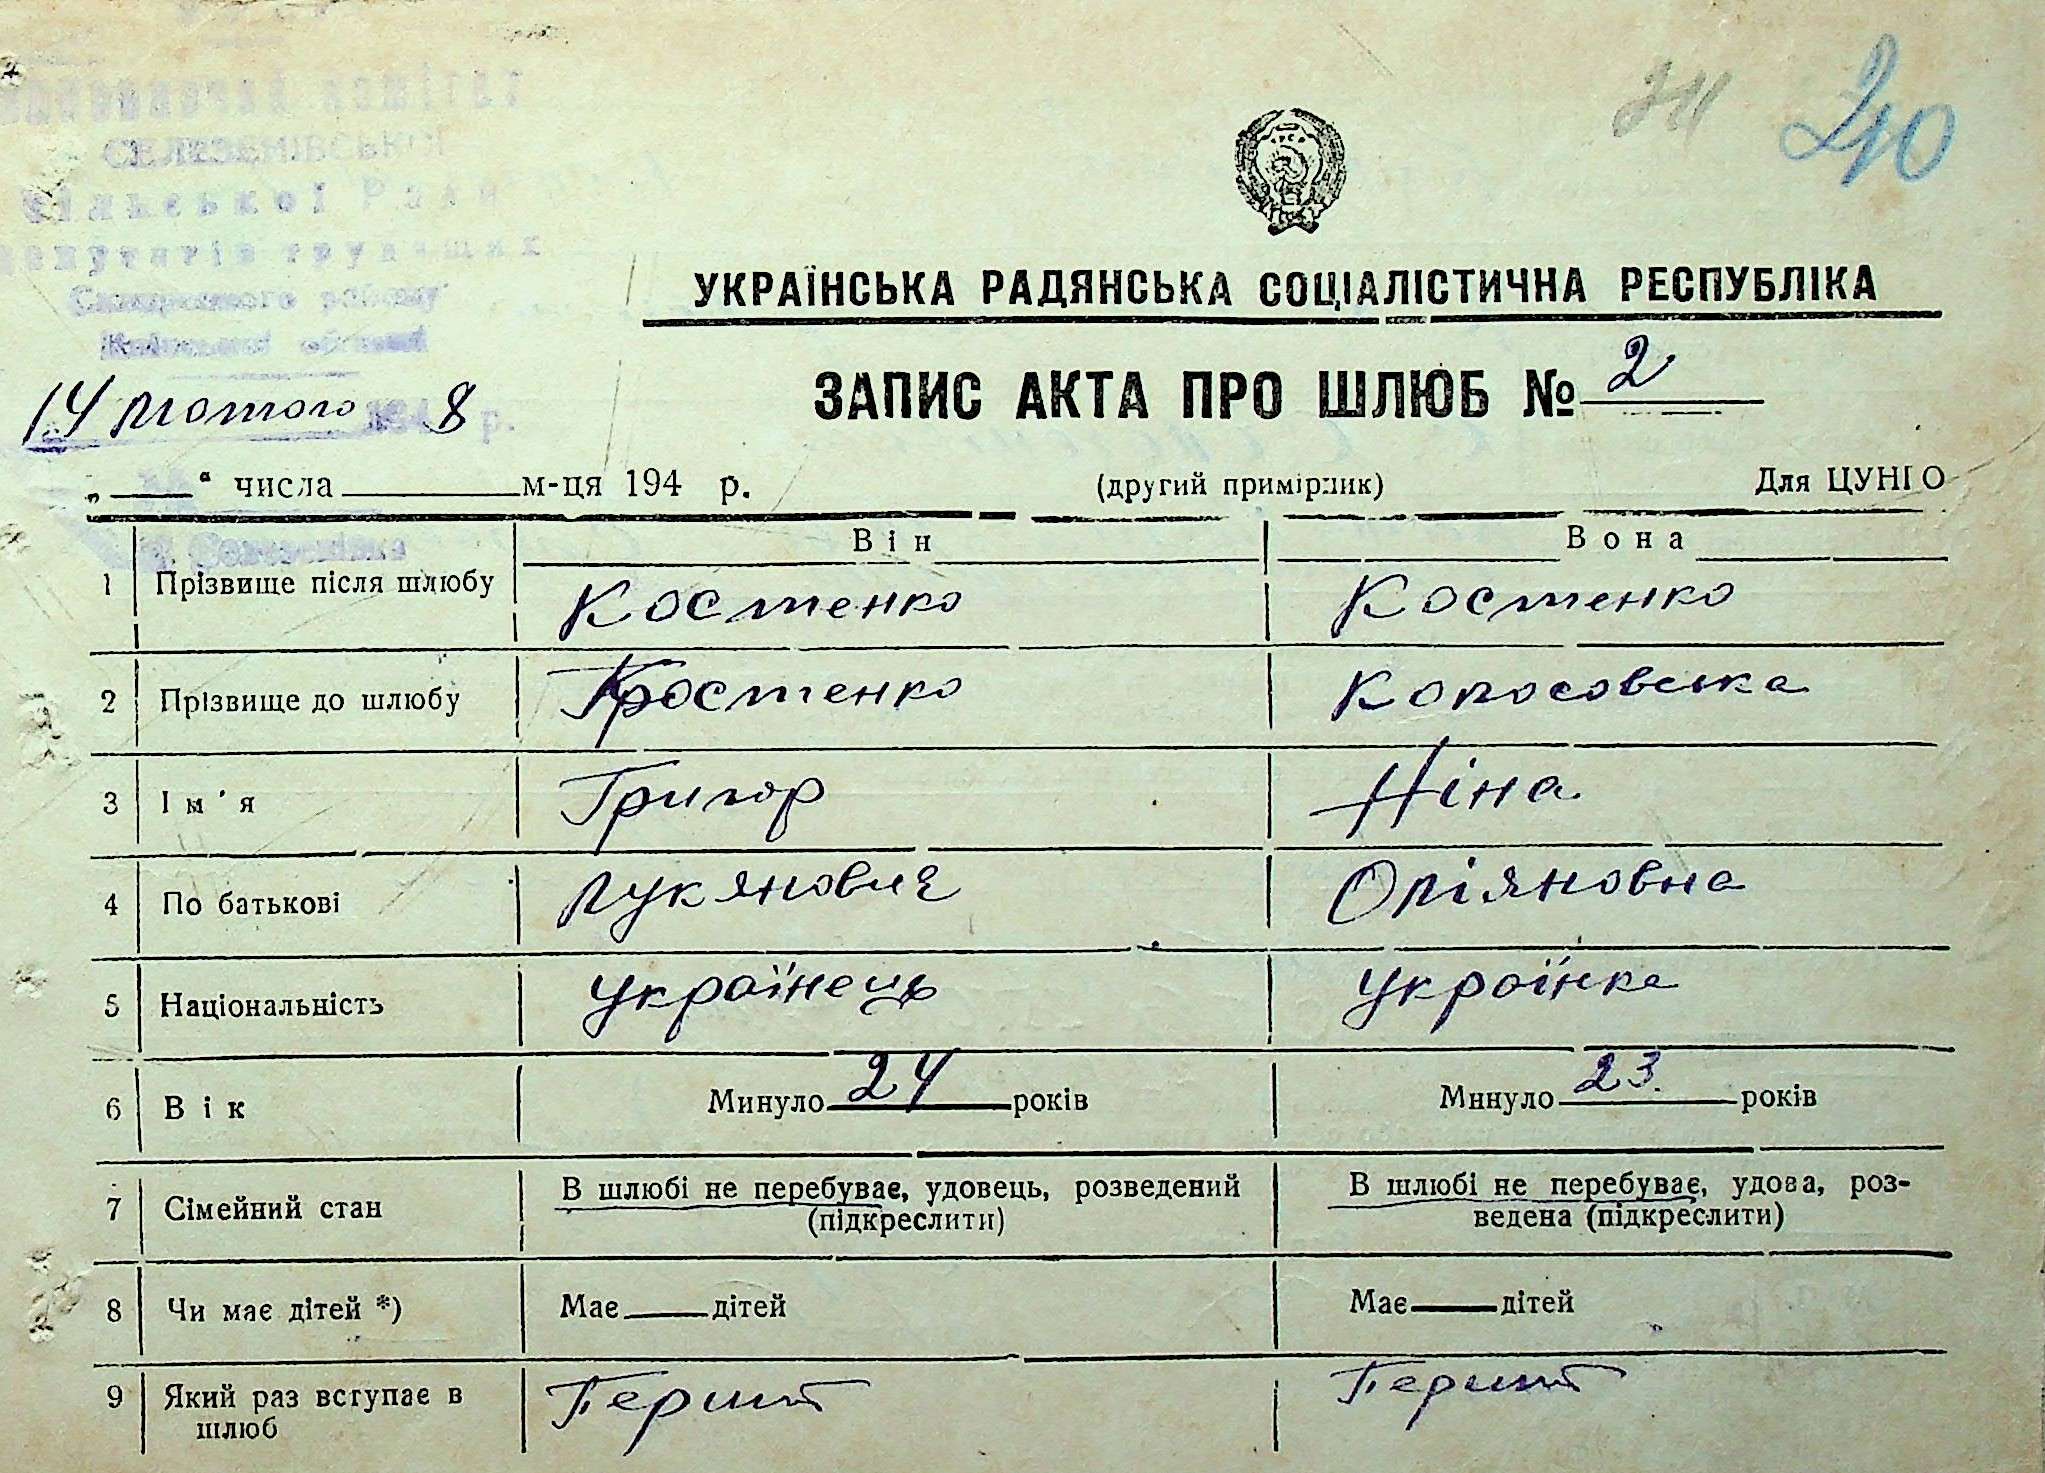 Виконавчий комітет
СЕЛЕЗЕНІВСЬКОЇ
Сільської Ради
депутатів трудящих
району
Київської області
14 лютого 1948 р.
с. Селезенівка
ЗИ 240
УКРАЇНСЬКА РАДЯНСЬКА СОЦІАЛІСТИЧНА РЕСПУБЛІКА
ЗАПИС АКТА ПРО ШЛЮБ № 2
„ “ числа м-ця 194 р. (другий примірник) Для ЦУНГО
Він Вона
1 Прізвище після шлюбу Костенко Костенко
2 Прізвище до шлюбу Костенко Колосовська
3 Ім'я Григор Ніна
4 По батькові Лукянович Опіяновна
5 Національність українець українка
6 Вік Минуло 24 років Минуло 23 років
7 Сімейний стан В шлюбі не перебуває, удовець, розведений (підкреслити) В шлюбі не перебуває, удова, роз-
ведена (підкреслити)
8 Чи має дітей *) Має — дітей Має — дітей
9 Який раз вступає в шлюб Перший Перший